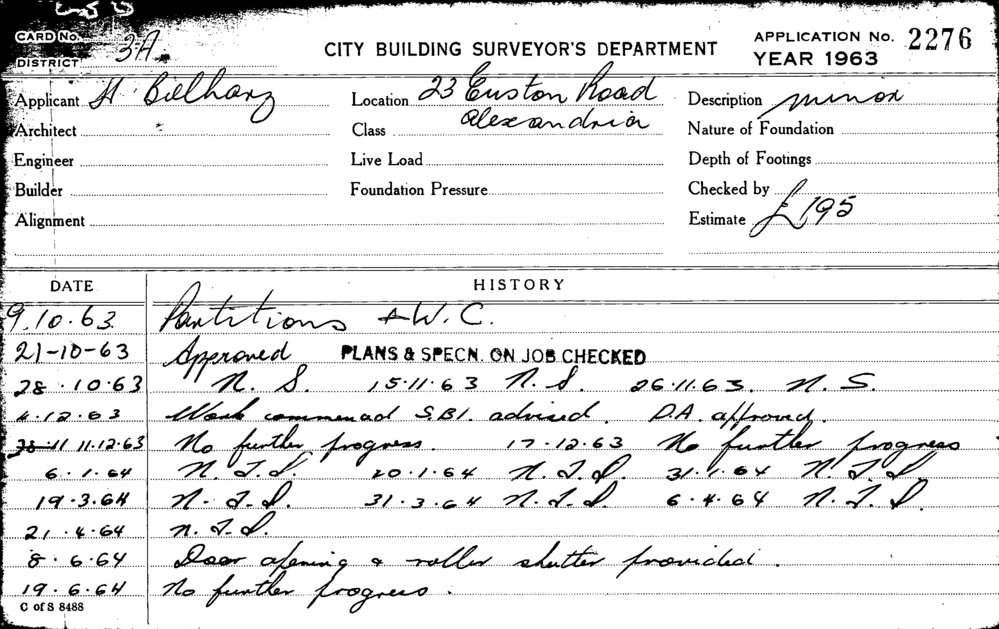 CARD No.
3A.
DISTRICT
CITY BUILDING SURVEYOR'S DEPARTMENT
APPLICATION No. 2276
YEAR 1963
Applicant H Bielharz
Location 23 Euston Road
Alexandria
Description minor
Architect
Class
Nature of Foundation
Engineer
Live Load
Depth of Footings
Builder
Foundation Pressure
Checked by
Alignment
Estimate £195
DATE HISTORY
9.10.63 Partitions + W.C.
21-10-63 Approved PLANS & SPECN. ON JOB CHECKED
28.10.63 N.S. 15.11.63 N.S. 26.11.63. N.S.
4.12.63 Work commenced S.B.I. advised. D.A. approved.
28-11 11.12.63 No further progress. 17.12.63 No further progress
6.1.64 N.I.P. 20.1.64 N.I.P. 31.1.64 N.I.P.
19.3.64 N.I.P. 31.3.64 N.I.P. 6.4.64 N.I.P.
21.4.64 N.I.P.
8.6.64 Door opening & roller shutter provided.
19.6.64 No further progress.
C of S 8488